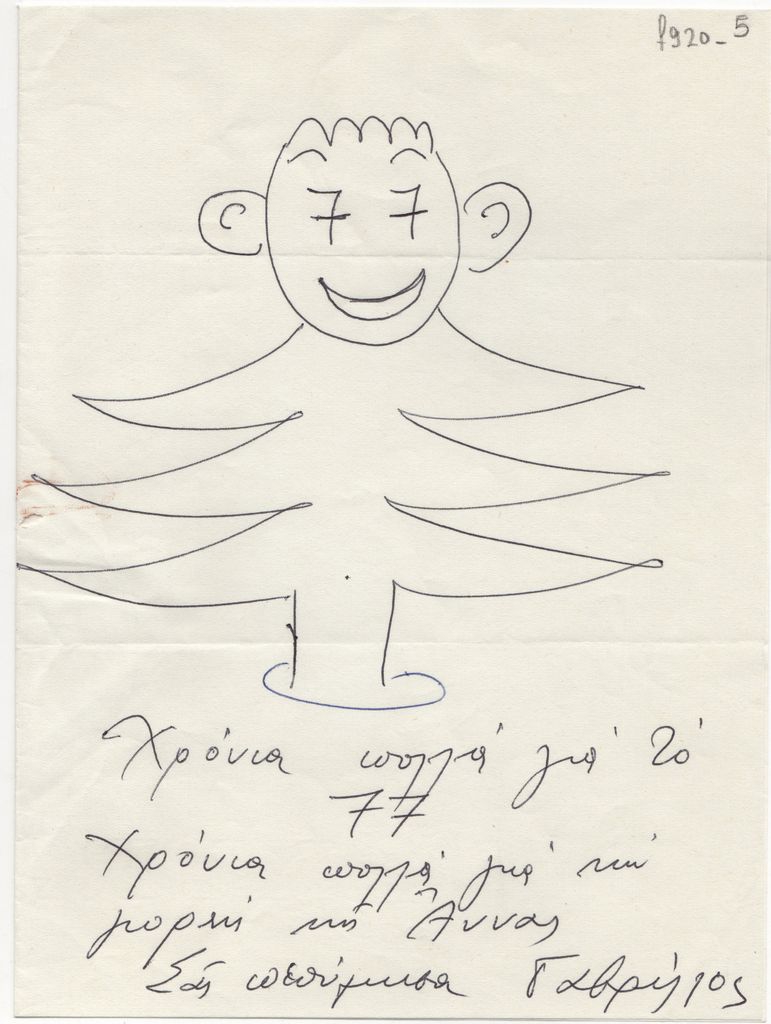 f920-5
7 7
Χρόνια πολλά γιά τό
77
Χρόνια πολλά γιά τήν
γιορτή τῆς Ἄννας
Σᾶς
Γαβρήλος